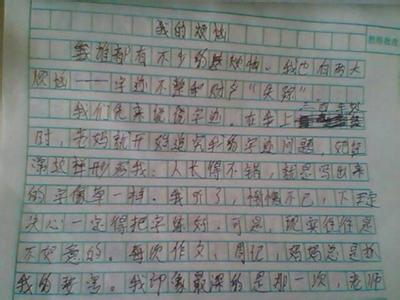 我的烦恼
谁都有不少的烦恼。我也有两大
烦恼——字迹不整和財字“失踪”
我们先来说说字迹。在我上三年级
时,老妈就开始追究我的字迹问题,她经
常这样形容我:人长得不错,就是写出来
的字像草一样。我听了,惭愧不已,下定
决心一定得把字练好。可是,现实往往是
不如意的。每次作文、周记,妈妈总是
我的 。我印象最深的是那一次,老师